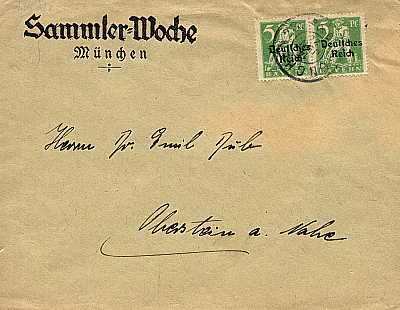 Sammler-Woche
München
5 Pf 5 Pf
Deutsches Deutsches
Reich Reich
BAYERN
Herrn Dr. Emil
Oberstein a. Nahe